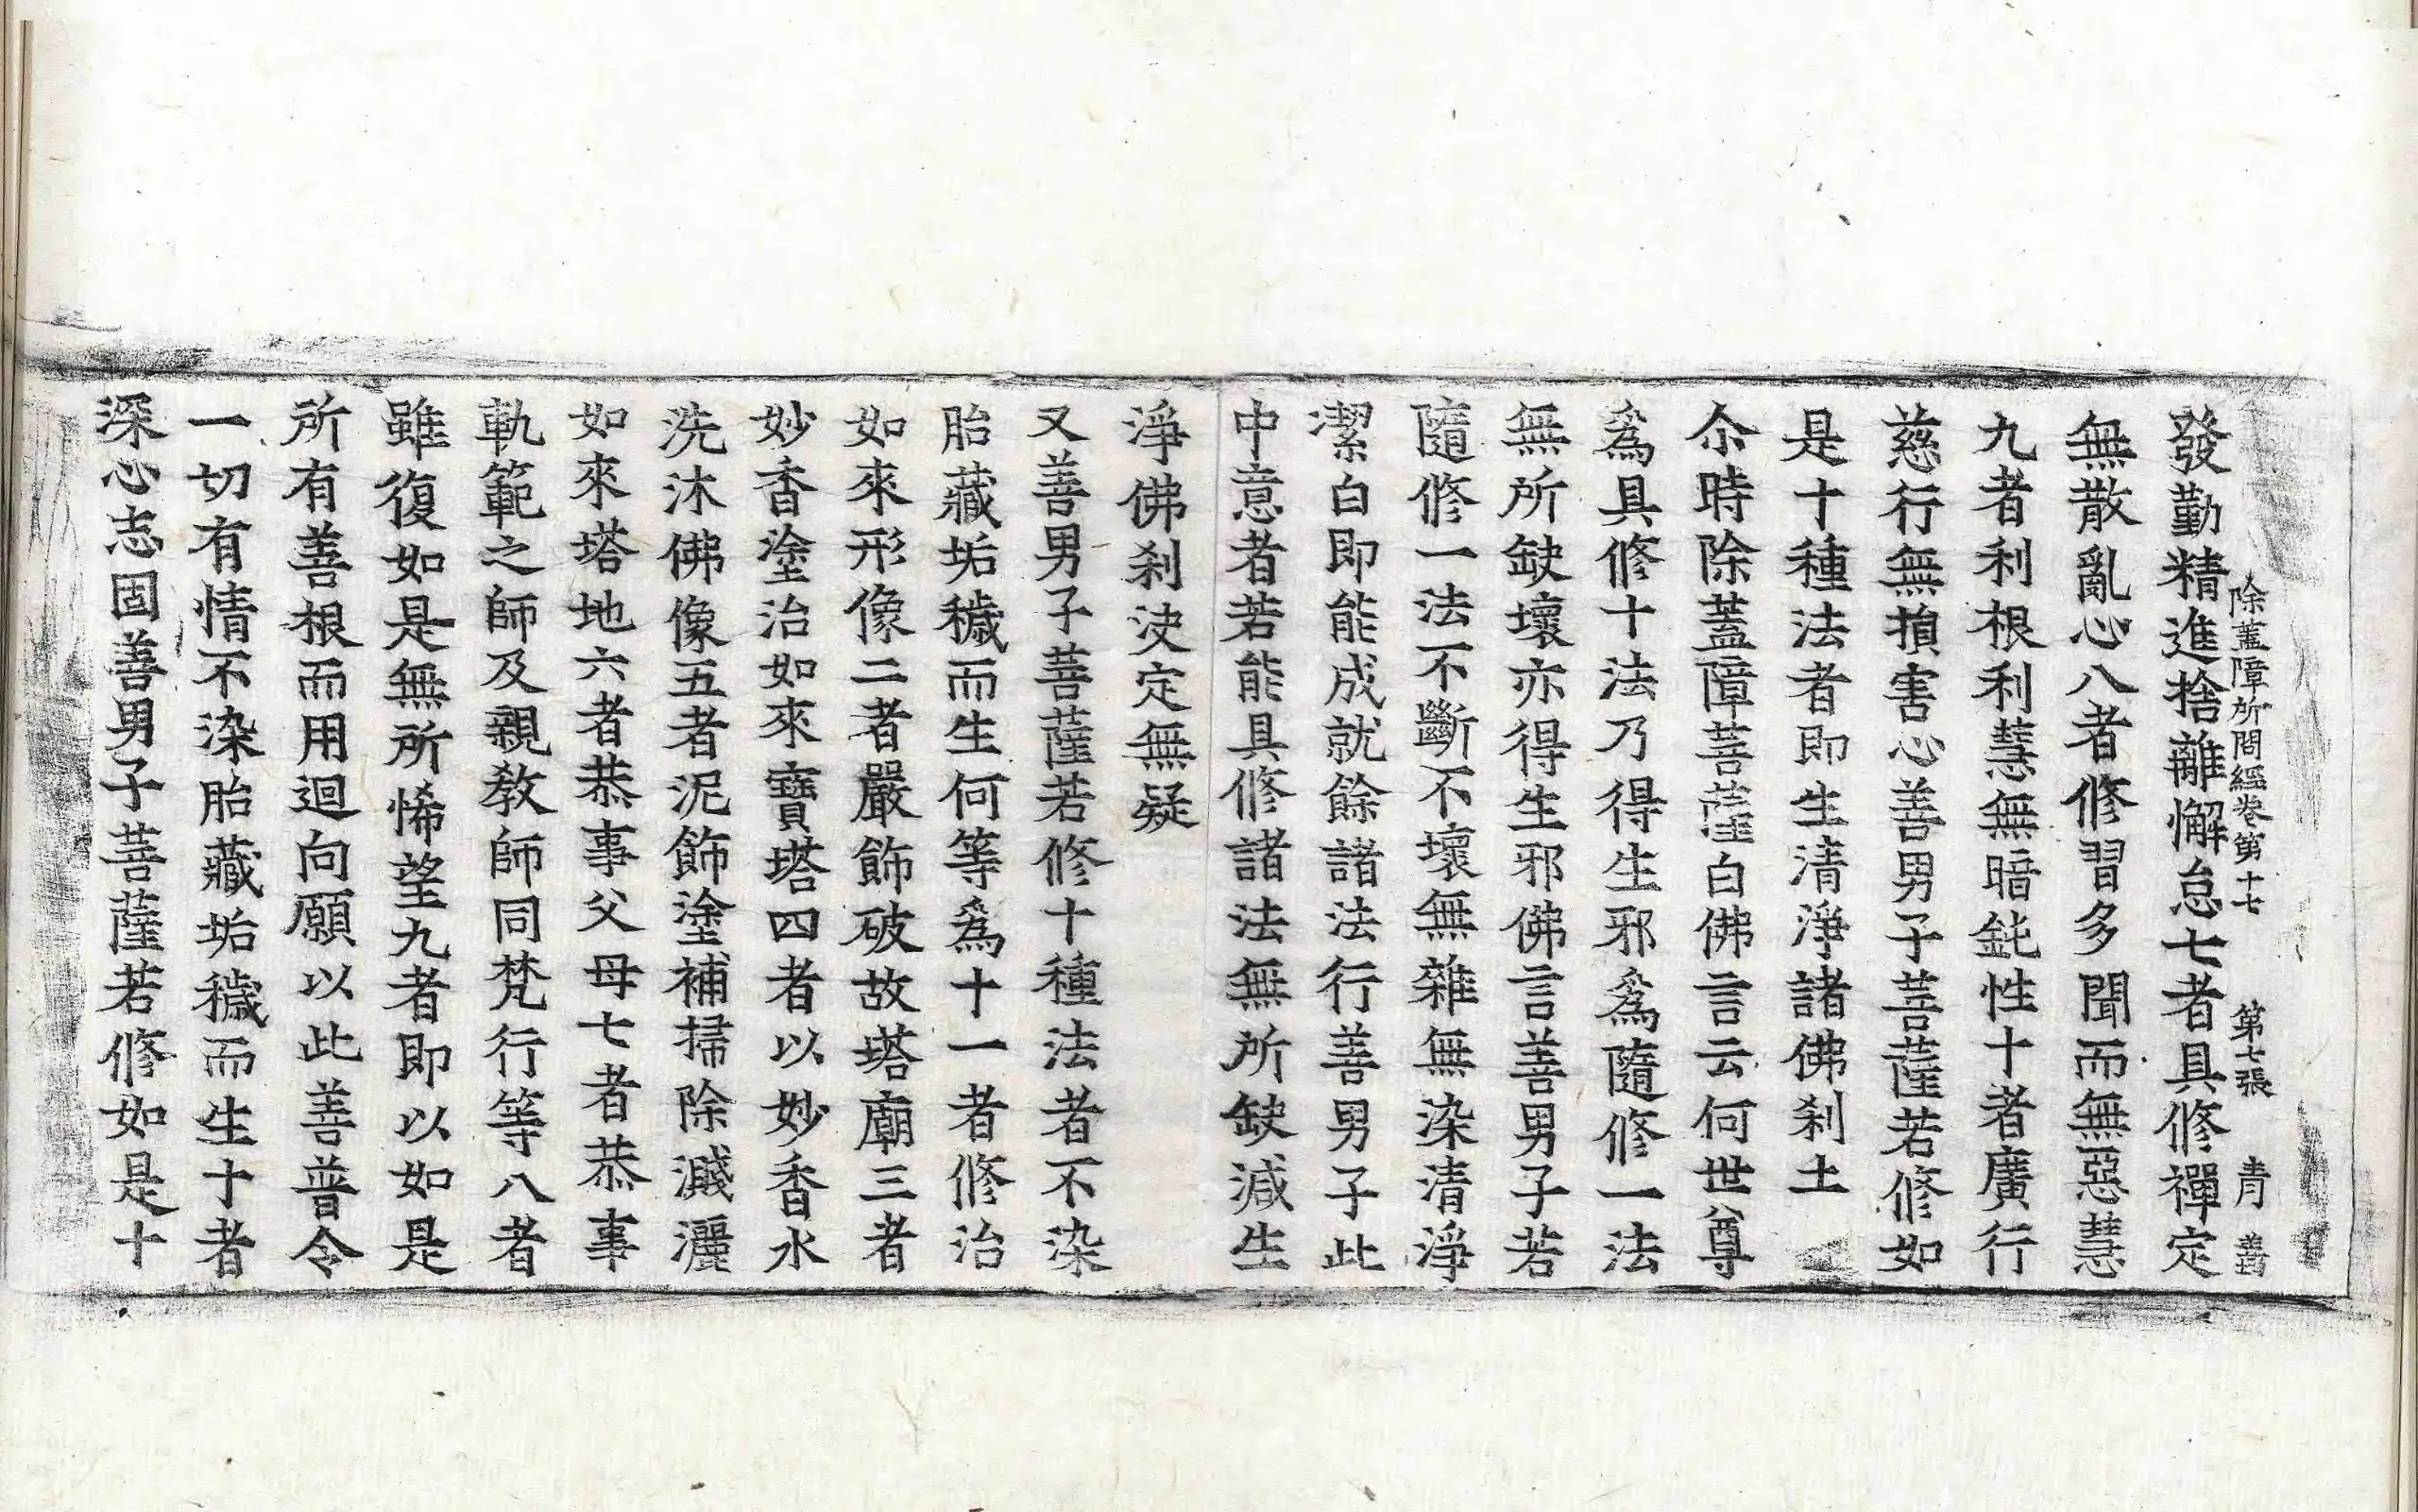 除蓋障所問經卷第十七 第七張 青
發勤精進捨離懈怠七者具修禪定
無散亂心八者修習多聞而無惡慧
九者利根利慧無暗鈍性十者廣行
慈行無損害心善男子菩薩若修如
是十種法者即生清淨諸佛刹土
尒時除蓋障菩薩白佛言云何世尊
爲具修十法乃得生邪爲隨修一法
無所缺壞亦得生邪佛言善男子若
隨修一法不斷不壞無雜無染清淨
潔白即能成就餘諸法行善男子此
中意者若能具修諸法無所缺減生
淨佛刹決定無疑
又善男子菩薩若修十種法者不染
胎藏垢穢而生何等爲十一者修治
如來形像二者嚴飾破故塔廟三者
妙香塗治如來寶塔四者以妙香水
洗沐佛像五者泥飾塗補掃除濺灑
如來塔地六者恭事父母七者恭事
軌範之師及親教師同梵行等八者
雖復如是無所悕望九者即以如是
所有善根而用迴向願以此善普令
一切有情不染胎藏垢穢而生十者
深心志固善男子菩薩若修如是十